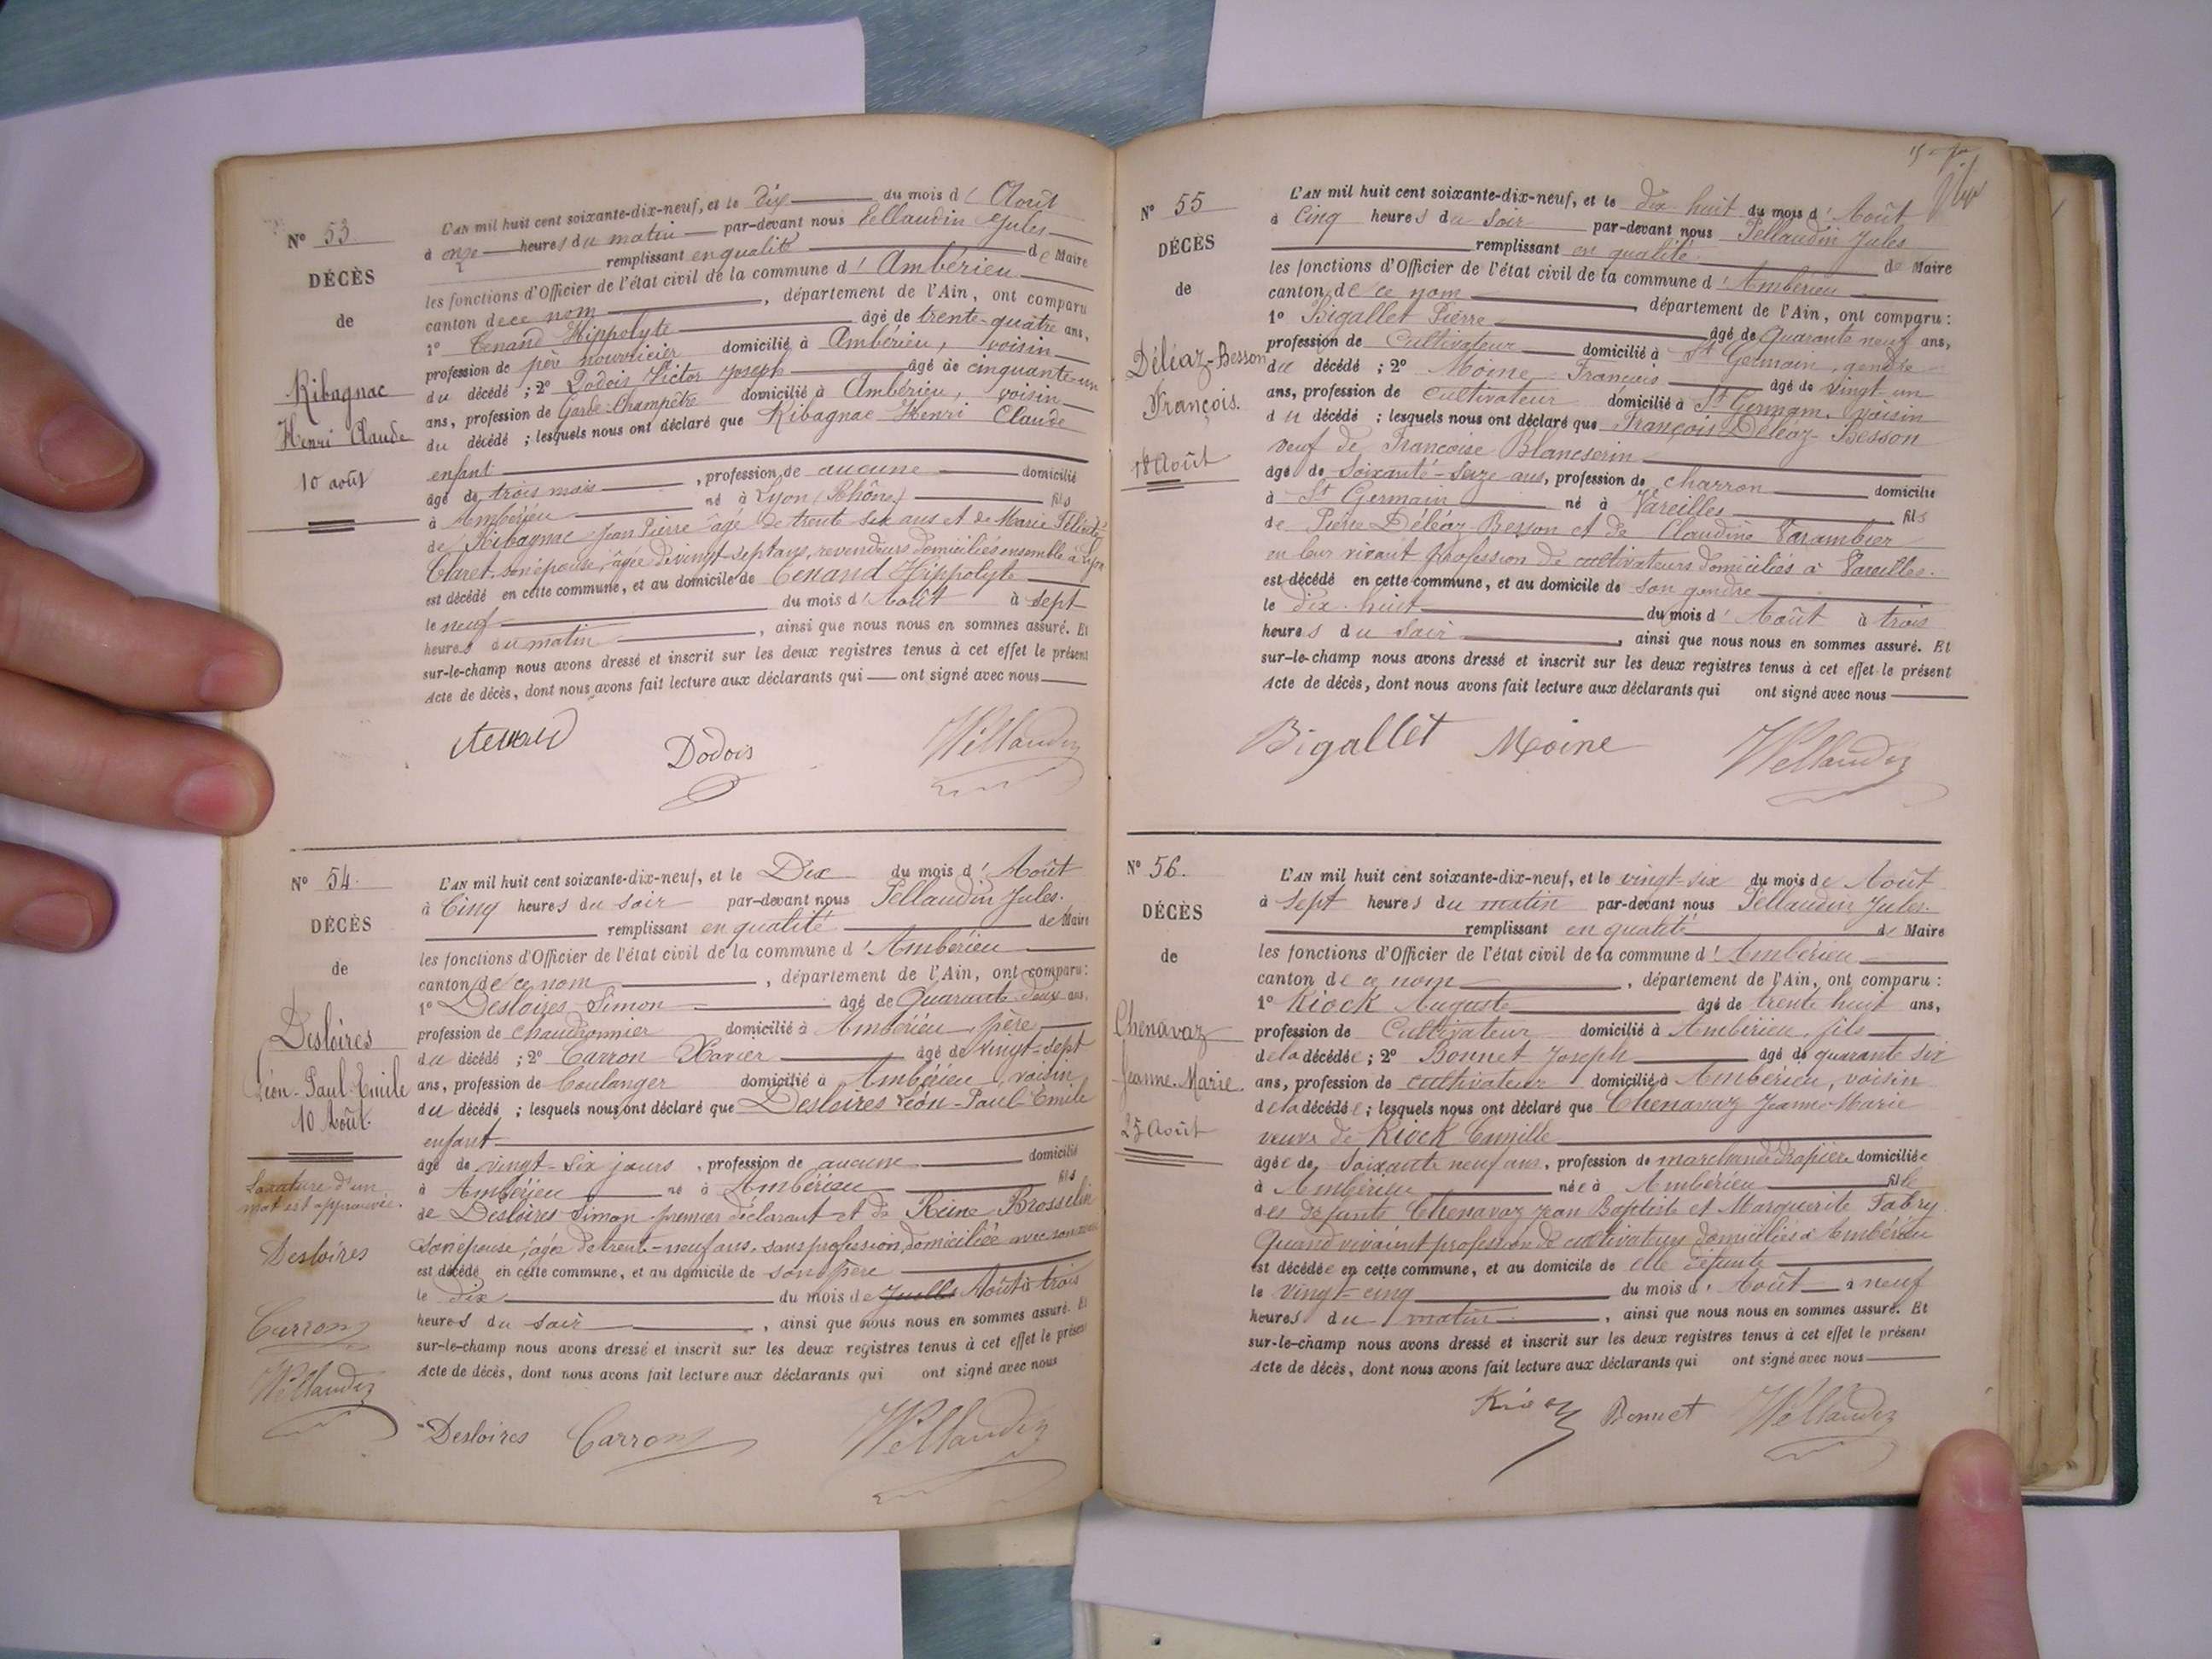 N° 53.
DÉCÈS
de
Ribagnac
Henri Claude
10 août
L'AN mil huit cent soixante-dix-neuf, et le dix du mois d'Août
à onze heures du matin par-devant nous Pellaudin Jules
remplissant en qualité de Maire
les fonctions d'Officier de l'état civil de la commune d'Ambérieu
canton de ce nom, département de l'Ain, ont comparu
1° Tenand Hippolyte âgé de trente-quatre ans,
profession de père nourricier domicilié à Ambérieu, voisin
du décédé ; 2° Dodois Victor Joseph âgé de cinquante-un
ans, profession de Garde-Champêtre domicilié à Ambérieu, voisin
du décédé ; lesquels nous ont déclaré que Ribagnac Henri Claude
enfant
âgé de trois mois, profession de aucune domicilié
à Ambérieu né à Lyon (Rhône) fils
de Ribagnac Jean Pierre âgé de trente six ans et de Marie Félicité
Claret son épouse, âgée de vingt-sept ans, revendeurs domiciliés ensemble à Lyon
est décédé en cette commune, et au domicile de Tenand Hippolyte
le neuf du mois d'Août à sept
heures du matin, ainsi que nous nous en sommes assuré. Et
sur-le-champ nous avons dressé et inscrit sur les deux registres tenus à cet effet le présent
Acte de décès, dont nous avons fait lecture aux déclarants qui ont signé avec nous
Tenand Dodois Pellaudin
N° 54.
DÉCÈS
de
Desloires
Léon-Paul-Emile
10 Août.
La rature d'un
mot est approuvée.
Desloires
Carron
Pellaudin
L'AN mil huit cent soixante-dix-neuf, et le Dix du mois d'Août
à Cinq heures du soir par-devant nous Pellaudin Jules.
remplissant en qualité de Maire
les fonctions d'Officier de l'état civil de la commune d'Ambérieu
canton de ce nom, département de l'Ain, ont comparu :
1° Desloires Simon âgé de Quarante-deux ans,
profession de chaudronnier domicilié à Ambérieu, père
du décédé ; 2° Carron Xavier âgé de vingt-sept
ans, profession de boulanger domicilié à Ambérieu, voisin
du décédé ; lesquels nous ont déclaré que Desloires Léon-Paul-Emile
enfant
âgé de vingt-six jours, profession de aucune domicilié
à Ambérieu né à Ambérieu fils
de Desloires Simon premier déclarant et de Reine Brosselin
son épouse, âgée de trente-neuf ans, sans profession, domiciliée avec son mari
est décédé en cette commune, et au domicile de son père
le dix du mois de Juillet Août à trois
heures du soir, ainsi que nous nous en sommes assuré. Et
sur-le-champ nous avons dressé et inscrit sur les deux registres tenus à cet effet le présent
Acte de décès, dont nous avons fait lecture aux déclarants qui ont signé avec nous
Desloires Carron Pellaudin
N° 55
DÉCÈS
de
Déléaz-Besson
François.
18 Août
L'AN mil huit cent soixante-dix-neuf, et le dix huit du mois d'Août
à Cinq heures du soir par-devant nous Pellaudin Jules
remplissant en qualité de Maire
les fonctions d'Officier de l'état civil de la commune d'Ambérieu
canton de ce nom département de l'Ain, ont comparu :
1° Bigallet Pierre âgé de Quarante neuf ans,
profession de Cultivateur domicilié à St Germain, gendre
du décédé ; 2° Moine François âgé de vingt-un
ans, profession de cultivateur domicilié à St Germain, voisin
du décédé ; lesquels nous ont déclaré que François Déléaz-Besson
veuf de Françoise Blancserin
âgé de soixante-seize ans, profession de charron domicilié
à St Germain né à Vareilles fils
de Pierre Déléaz-Besson et de Claudine Varambier
en leur vivant profession de cultivateurs domiciliés à Vareilles.
est décédé en cette commune, et au domicile de son gendre
le dix-huit du mois d'Août à trois
heures du soir, ainsi que nous nous en sommes assuré. Et
sur-le-champ nous avons dressé et inscrit sur les deux registres tenus à cet effet le présent
Acte de décès, dont nous avons fait lecture aux déclarants qui ont signé avec nous
Bigallet Moine Pellaudin
N° 56.
DÉCÈS
de
Chenavaz
Jeanne-Marie.
25 Août
L'AN mil huit cent soixante-dix-neuf, et le vingt-six du mois de Août
à sept heures du matin par-devant nous Pellaudin Jules.
remplissant en qualité de Maire
les fonctions d'Officier de l'état civil de la commune d'Ambérieu
canton de ce nom, département de l'Ain, ont comparu :
1° Kiock Auguste âgé de trente huit ans,
profession de Cultivateur domicilié à Ambérieu, fils
de la décédée ; 2° Bonnet Joseph âgé de quarante six
ans, profession de cultivateur domicilié à Ambérieu, voisin
de la décédée ; lesquels nous ont déclaré que Chenavaz Jeanne-Marie
veuve de Kiock Camille
âgée de soixante neuf ans, profession de marchande drapière domiciliée
à Ambérieu née à Ambérieu fille
des defunts Chenavaz Jean Baptiste et Marguerite Fabry
Quand vivaient profession de cultivateurs domiciliés à Ambérieu
est décédée en cette commune, et au domicile de elle défunte
le vingt-cinq du mois d'Août à neuf
heures du matin, ainsi que nous nous en sommes assuré. Et
sur-le-champ nous avons dressé et inscrit sur les deux registres tenus à cet effet le présent
Acte de décès, dont nous avons fait lecture aux déclarants qui ont signé avec nous
Kiock Bonnet Pellaudin